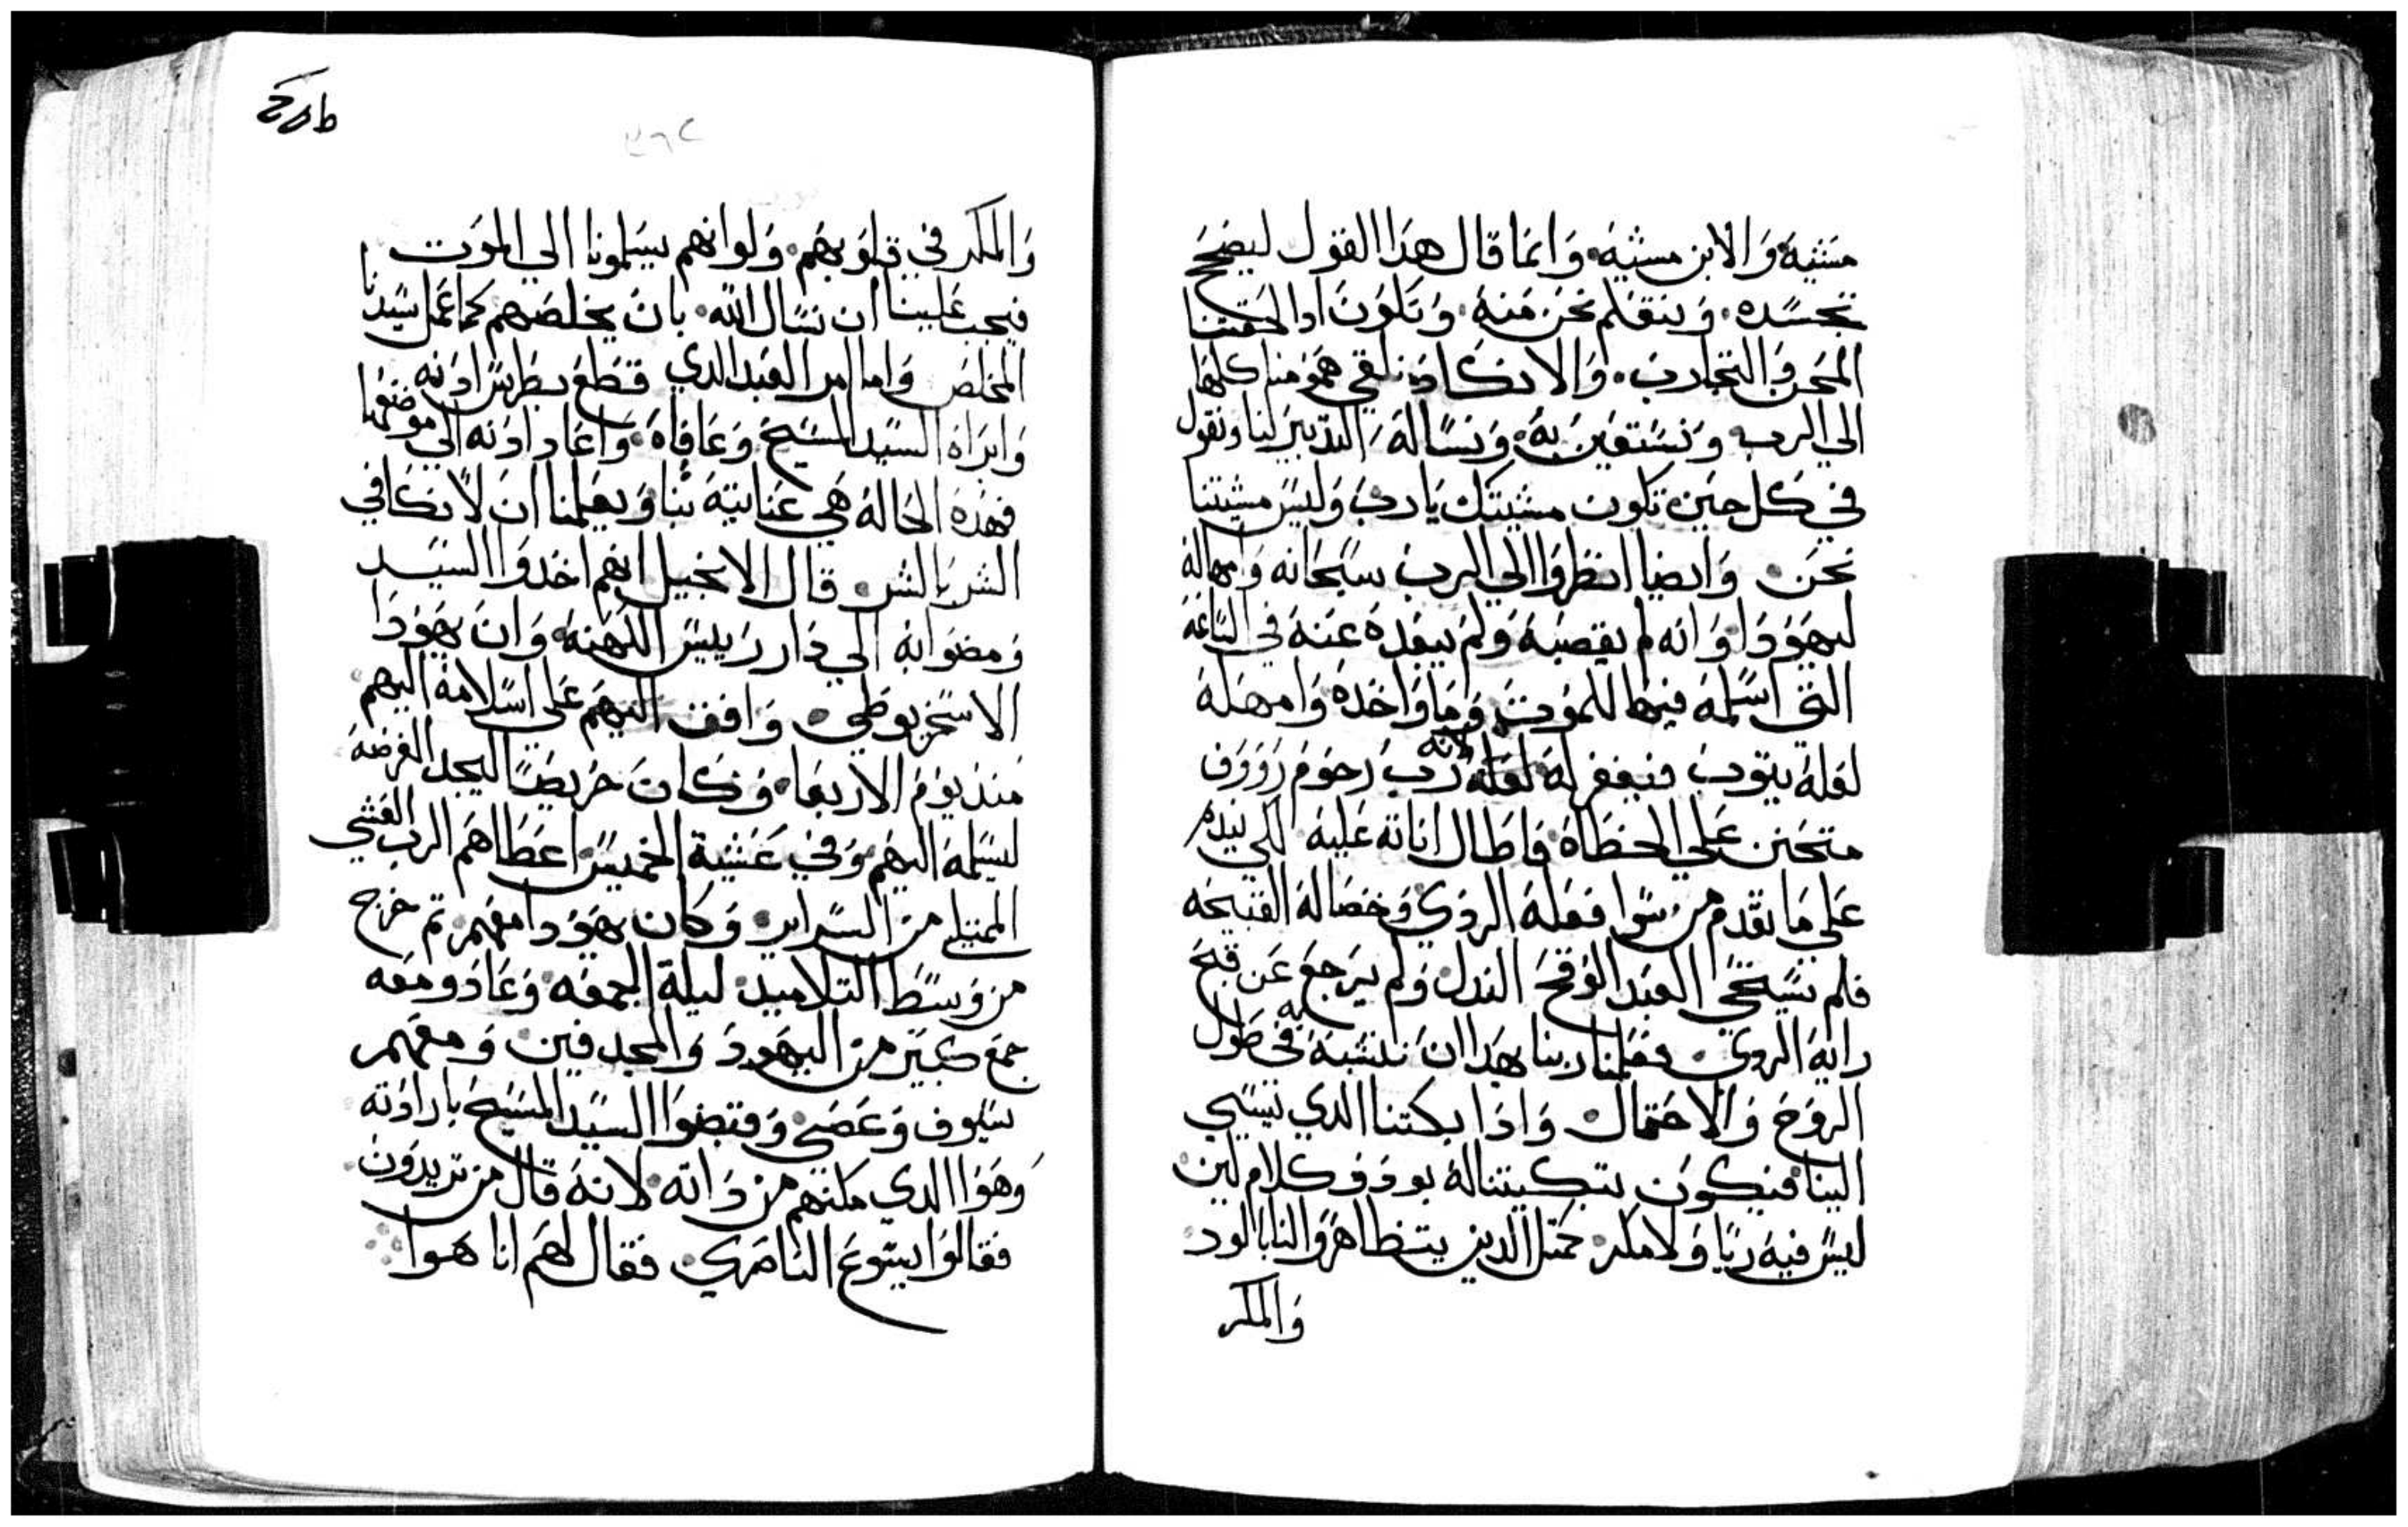 مشيه والابن مشيه وانما قال هدا القول ليصحح
تجسده وينقلم نحن منه وتكون ادا لحقتنا
المحن والتجارب والانكاد نلقي همومنا كلها
الي الرب ونستعين به ونساله التدبير لنا ونقول
في كل حين تكون مشيتك يارب وليس مشيتنا
نحن وايضا انظروا الي الرب سبحانه وامهاله
ليهودا وانه لم يقصيه ولم يبعده عنه في الساعه
التي اسلمه فيها للموت وما واخده وامهله
لعله يتوب فيغفر له لعله لانه رب رحوم رووف
متحنن علي الخطاه فاطال اناته عليه لكي يندم
علي ما تقدم من سوا فعله الردي وخصاله القبيحه
فلم يستحي العبد الوقح الندل ولم يرجع عن قبح
رايه الردي فعلمنا ربنا بهدا ان نتشبه به في طول
الروح والاحتمال وادا بكتنا الدي يسي
الينا فيكون بتكيتنا له بود وكلام لين
ليس فيه ريا ولا مكر كمتل الدين يتظاهروا لنا بالود
والمكر
والمكر في قلوبهم ولو انهم يسلمونا الي الموت
فيجب علينا ان نسال الله بان يخلصهم كما عمل سيدنا
المخلص واما امر العبد الدي قطع بطرس ادنه
وابراه السيد المسيح وعافاه واعاد ادنه الي موضعها
فهده الحاله هي عنايته بنا ويعلمنا ان لا نكافي
الشر بالشر قال الانجيل انهم اخدوا السيد
ومضوا به الي دار رييس الكهنه وان يهودا
الاسخريوطي وافق اليهم علي اسلامه اليهم
مند يوم الاربعا وكان حريصا ليجد الفرصه
ليسلمه اليهم وفي عشية الخميس اعطاهم الرب العشي
الممتلي من السراير وكان يهودا معهم تم خرج
من وسط التلاميد ليلة الجمعه وعاد ومعه
جمع كبير من اليهود والمجدفين ومعهم
سيوف وعصي وقبضوا السيد المسيح بارادته
وهوا الدي مكنهم من داته لانه قال من تريدون
فقالوا يسوع الناصري فقال لهم انا هوا